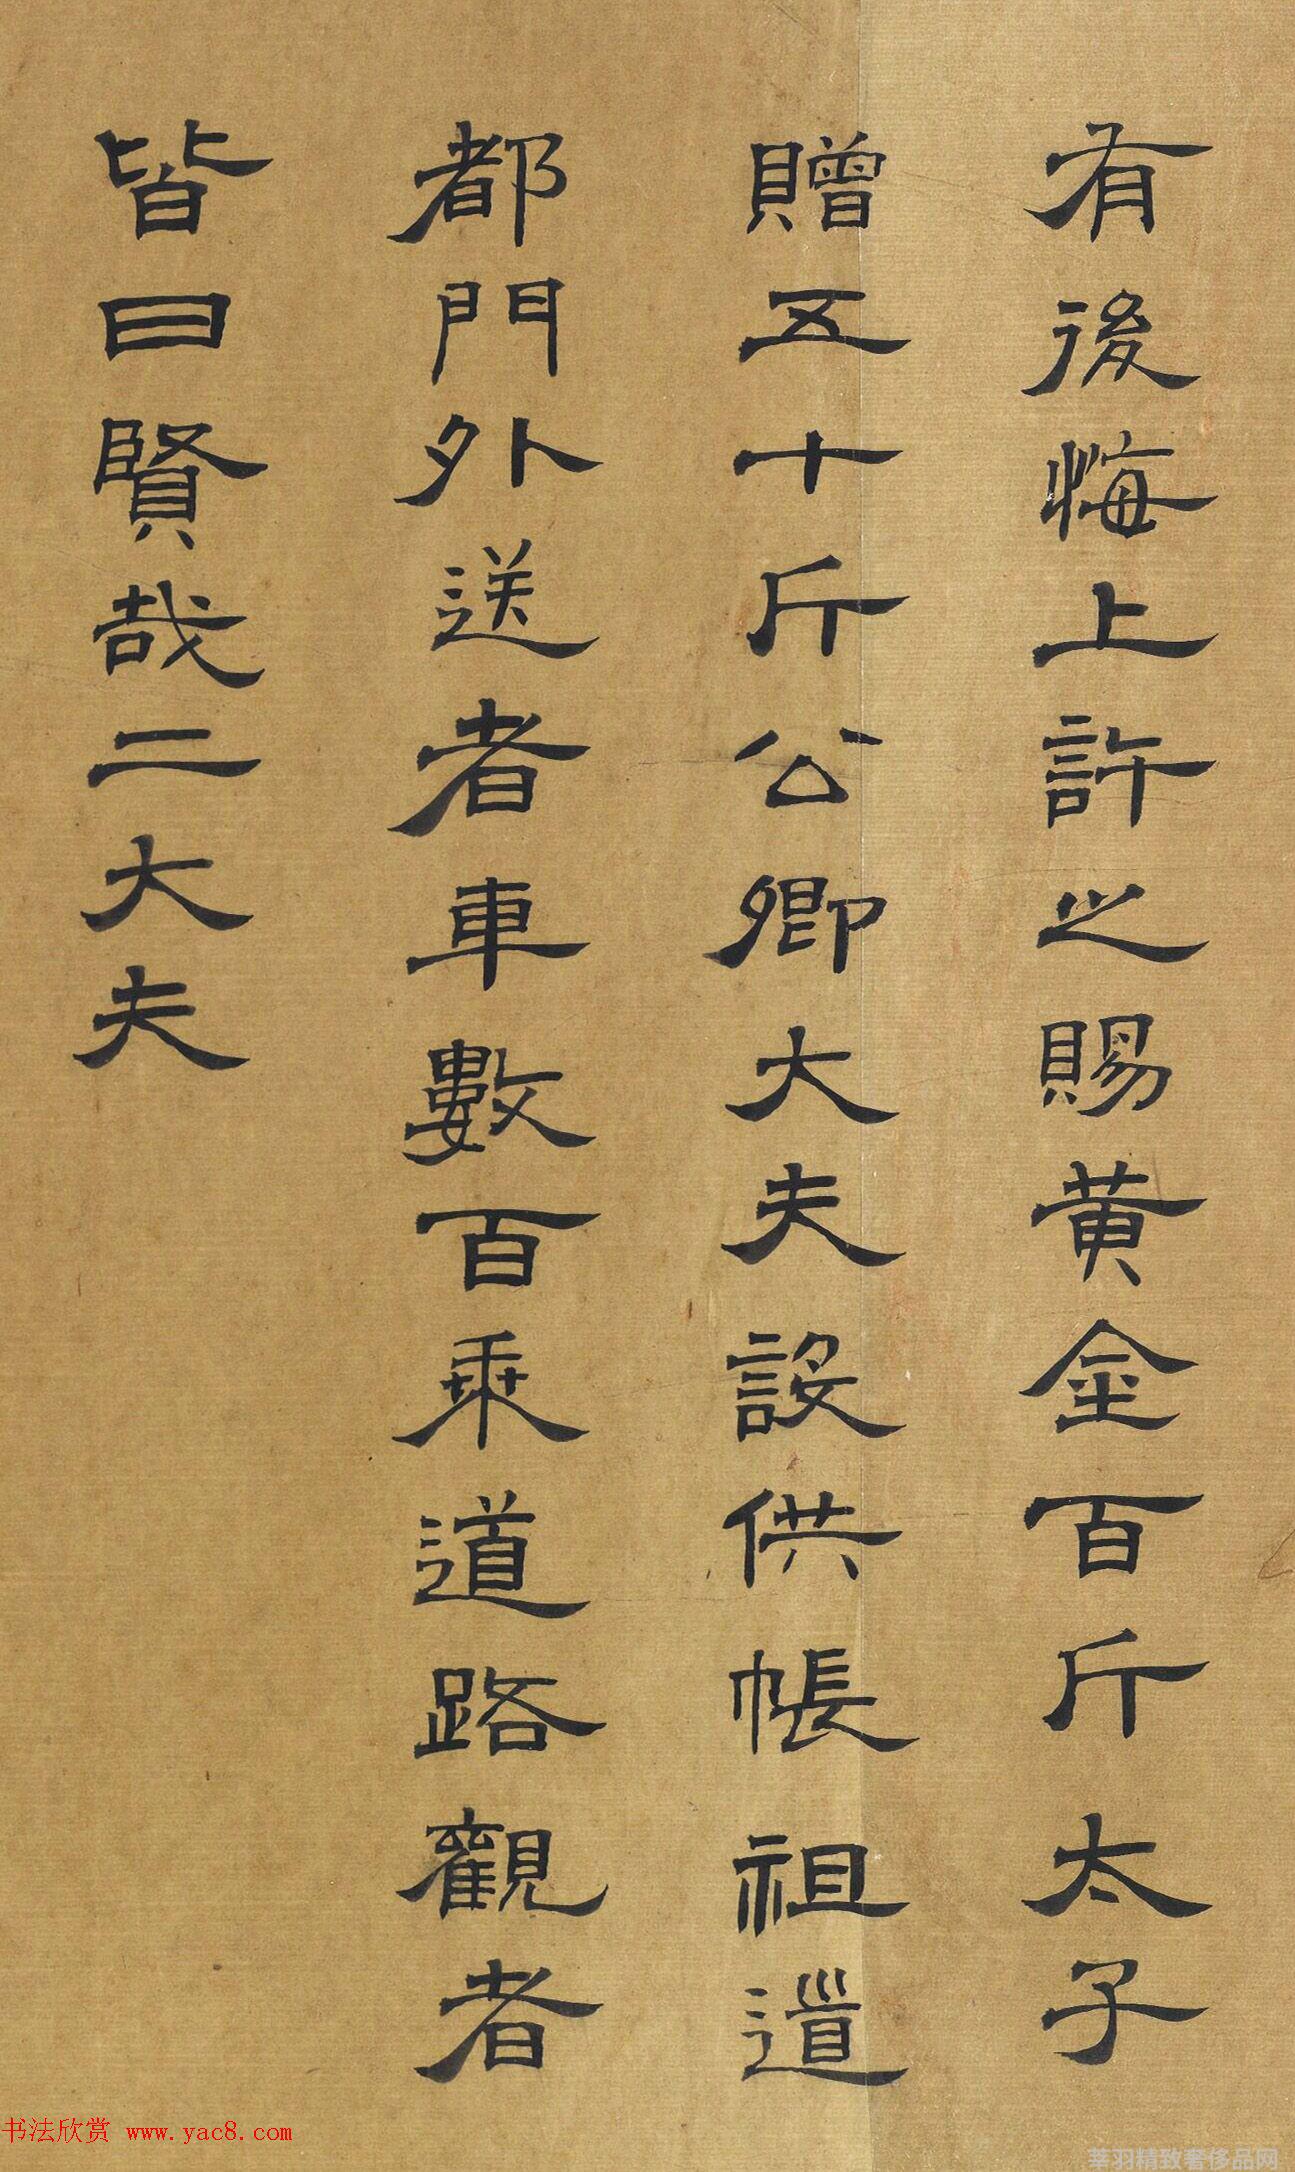 有後悔上許之賜黃金百斤太子
贈五十斤公卿大夫設供帳祖道
都門外送者車數百乘道路觀者
皆曰賢哉二大夫
书法欣赏 www.yac8.com
莘羽精致奢侈品网